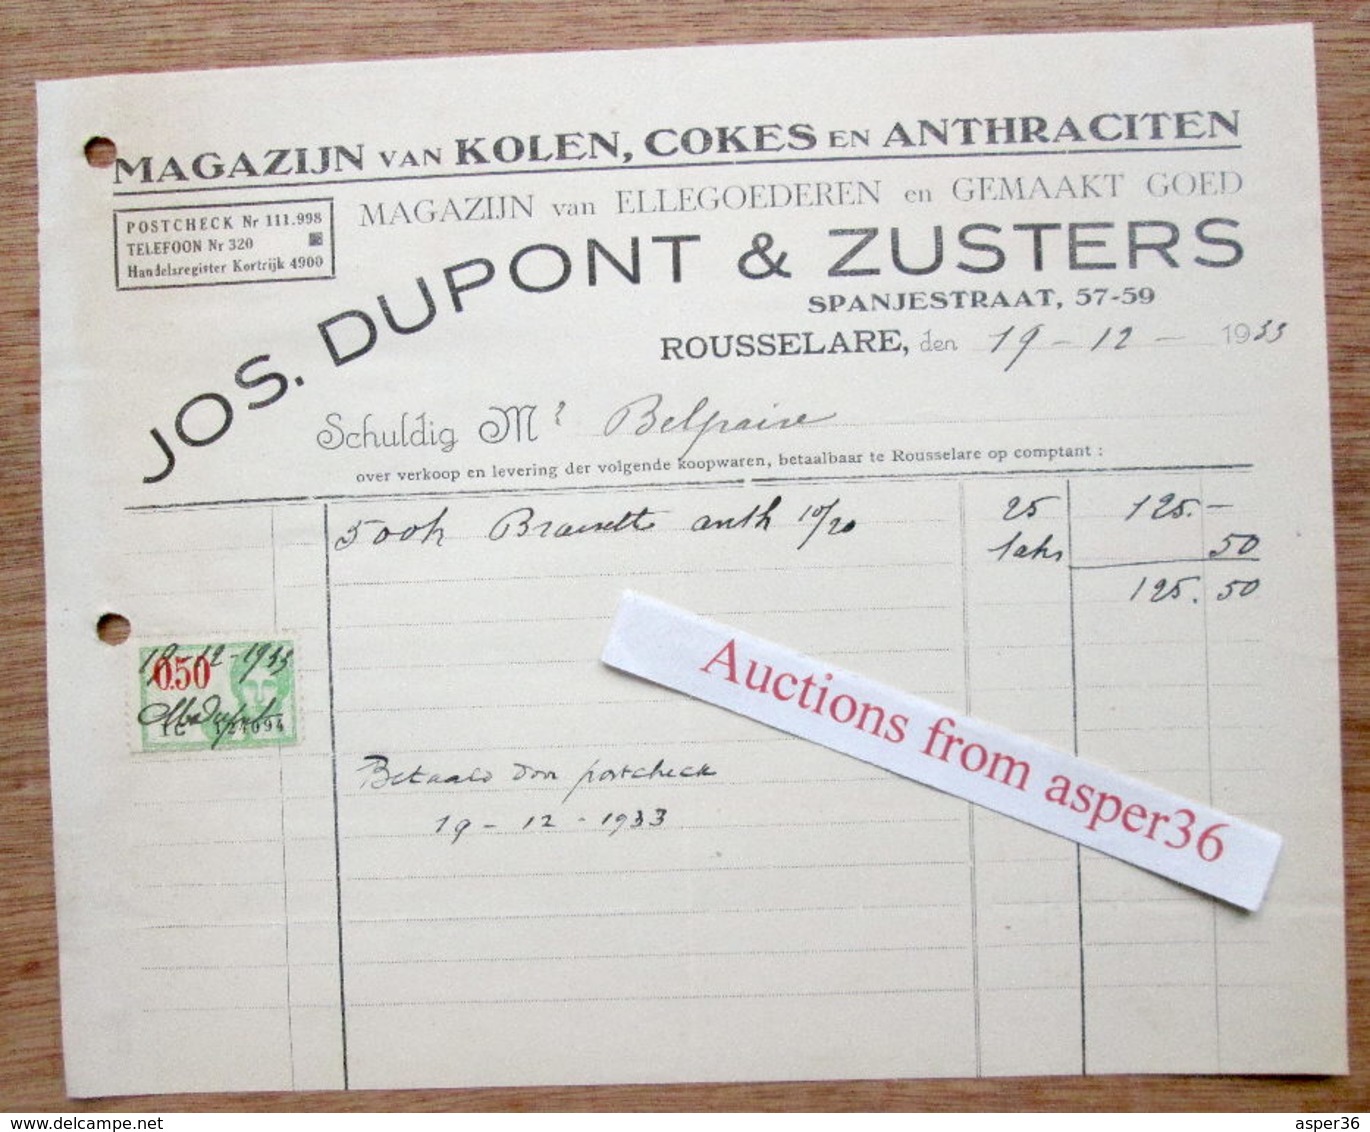 MAGAZIJN VAN KOLEN, COKES EN ANTHRACITEN
MAGAZIJN van ELLEGOEDEREN en GEMAAKT GOED
POSTCHECK Nr 111.998
TELEFOON Nr 320
Handelsregister Kortrijk 4900
JOS. DUPONT & ZUSTERS
SPANJESTRAAT, 57-59
ROUSSELARE, den 19 - 12 - 1933
Schuldig Mr Belpaire
over verkoop en levering der volgende koopwaren, betaalbaar te Rousselare op comptant :
500k anth 10/20 25 125.-
50
125.50
19-12-1933
0.50
Betaald door postcheck
19 - 12 - 1933
Auctions from asper36
www.delcampe.net
asper36